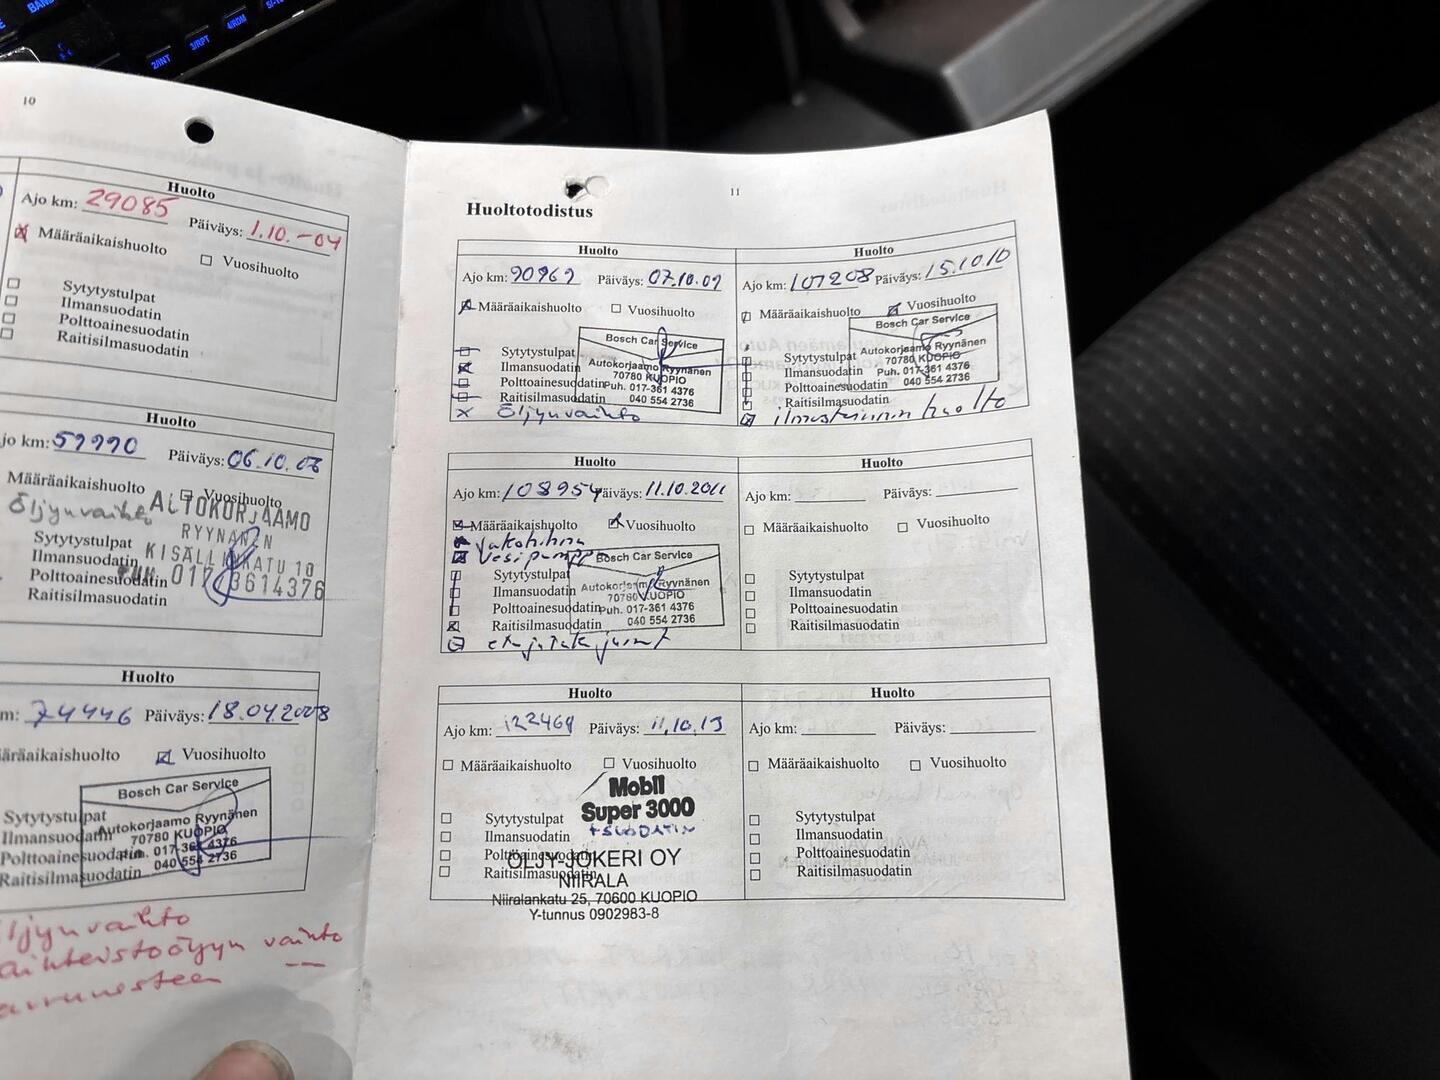 2/INT
3/RPT
4/RDM
10
Huolto
Ajo km: 29085 Päiväys: 1.10.-04
Määräaikaishuolto
Vuosihuolto
Sytytystulpat
Ilmansuodatin
Polttoainesuodatin
Raitisilmasuodatin
jo km: 59990 Päiväys: 06.10.06
Määräaikaishuolto Vuosihuolto
Öljynvaihto
AUTOKORJAAMO
RYYNÄNEN
KISÄLLINKATU 10
PUH. 017 3614376
Sytytystulpat
Ilmansuodatin
Polttoainesuodatin
Raitisilmasuodatin
Huolto
m: 74446 Päiväys: 18.04.2008
ääräaikaishuolto Vuosihuolto
Bosch Car Service
Autokorjaamo Ryynänen
70780 KUOPIO
Puh. 017-361 4376
040 554 2736
Sytytystulpat
Ilmansuodatin
Polttoainesuodatin
Raitisilmasuodatin
ljynvaihto
aihteistoöljyn vaihto
11
Huoltotodistus
Huolto
Ajo km: 90969 Päiväys: 07.10.09
Määräaikaishuolto Vuosihuolto
Bosch Car Service
Autokorjaamo Ryynänen
70780 KUOPIO
Puh. 017-361 4376
040 554 2736
Sytytystulpat
Ilmansuodatin
Polttoainesuodatin
Raitisilmasuodatin
Öljynvaihto
Huolto
Ajo km: 107208 Päiväys: 15.10.10
Määräaikaishuolto Vuosihuolto
Bosch Car Service
Autokorjaamo Ryynänen
70780 KUOPIO
Puh. 017-361 4376
040 554 2736
Sytytystulpat
Ilmansuodatin
Polttoainesuodatin
Raitisilmasuodatin
ilmastoinnin huolto
Huolto
Ajo km: 108954 Päiväys: 11.10.2011
Määräaikaishuolto Vuosihuolto
Jakohihna
Vesipumppu
Bosch Car Service
Autokorjaamo Ryynänen
70780 KUOPIO
Puh. 017-361 4376
040 554 2736
Sytytystulpat
Ilmansuodatin
Polttoainesuodatin
Raitisilmasuodatin
etujarrut
Huolto
Ajo km: Päiväys:
Määräaikaishuolto Vuosihuolto
Sytytystulpat
Ilmansuodatin
Polttoainesuodatin
Raitisilmasuodatin
Huolto
Ajo km: 122469 Päiväys: 11.10.13
Määräaikaishuolto Vuosihuolto
Mobil
Super 3000
+SUODATIN
Sytytystulpat
Ilmansuodatin
Polttoainesuodatin
Raitisilmasuodatin
ÖLJY-JOKERI OY
NIIRALA
Niiralankatu 25, 70600 KUOPIO
Y-tunnus 0902983-8
Huolto
Ajo km: Päiväys:
Määräaikaishuolto Vuosihuolto
Sytytystulpat
Ilmansuodatin
Polttoainesuodatin
Raitisilmasuodatin